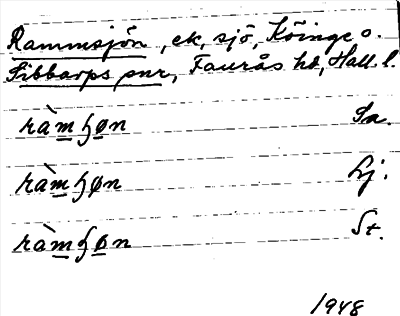 Rammsjön, ek, sjö, Köinge o.
Fibbarps snr, Faurås hd, Hall. l.
ràmɧøn Sa.
ràmɧøn Lj.
ràmɧøn St.
1948